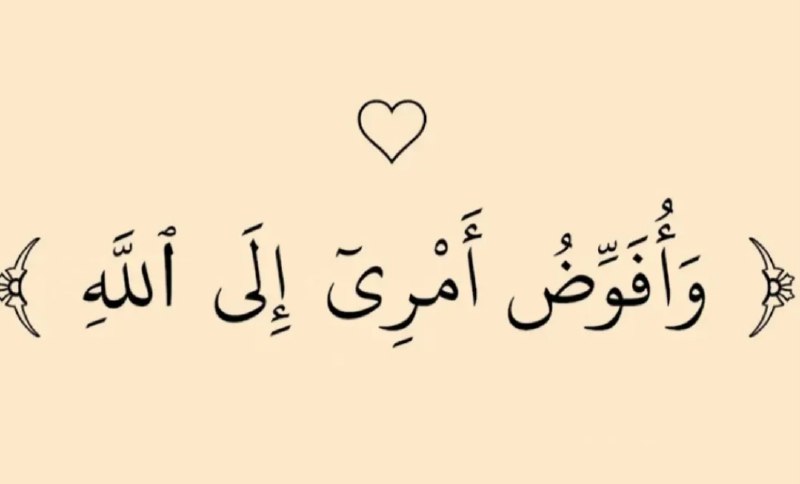 ﴿ وَأُفَوِّضُ أَمْرِىٓ إِلَى ٱللَّهِ ﴾